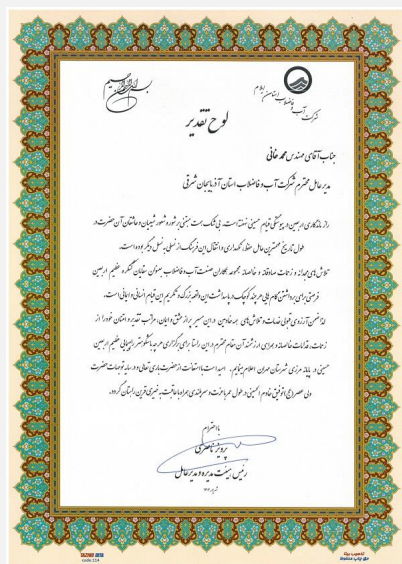 بسم الله الرحمن الرحیم
شرکت آب و فاضلاب استان ایلام
لوح تقدیر
جناب آقای مهندس محمد خانی
مدیر عامل محترم شرکت آب و فاضلاب استان آذربایجان شرقی
راز ماندگاری اربعین در پیوستگی قیام حسینی نهفته است. بی شک همت جمعی پرشور و شعور شیعیان و عاشقان آن حضرت در
طول تاریخ مهمترین عامل حفظ، نگهداری و انتقال این فرهنگ از نسلی به نسل دیگر بوده است.
تلاش های مجدانه و زحمات صادقانه و خالصانه مجموعه همکاران صنعت آب و فاضلاب بعنوان سقایان کنگره عظیم اربعین
فرصتی برای برداشتن گام هایی هر چند کوچک در پاسداشت این واقعه بزرگ و تکریم این قیام انسانی و ایمانی است.
لذا ضمن آرزوی قبولی خدمات و تلاش های همه خادمین در این مسیر پر از عشق و ایمان، مراتب تقدیر و امتنان خود را از
زحمات، اقدامات خالصانه و همراهی ارزشمند آن مقام محترم در این راستا برای برگزاری هر چه باشکوهتر راهپیمایی عظیم اربعین
حسینی در پایانه مرزی شهرستان مهران اعلام مینمایم. امید است با استعانت از حضرت باری تعالی و در سایه توجهات حضرت
ولی عصر (عج) توفیق خادم الحسینی در طول عمر با عزت و سربلندی همراه با عاقبت به خیری قرین راهتان گردد.
با احترام
پرویز ناصری
رئیس هیئت مدیره و مدیر عامل
TAZHIB BITA
code:114
تذهیب بیتا
حق چاپ محفوظ